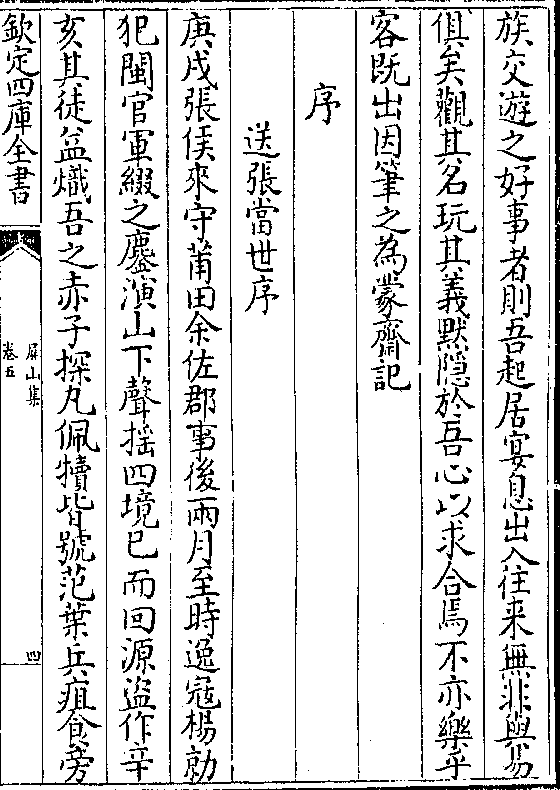 族交遊之好事者則吾起居宴息出入往来無非與易
俱矣觀其名玩其義黙隠於吾心以求合焉不亦樂乎
客既出因筆之為蒙齋記
序
送張當世序
庚戌張侯來守莆田余佐郡事後兩月至時逸冦楊勍
犯閩官軍綴之鏖演山下聲揺四境已而回源盜作辛
亥其徒益熾吾之赤子探丸佩犢皆號范葉兵疽食旁
欽定四庫全書
屏山集
卷五
四